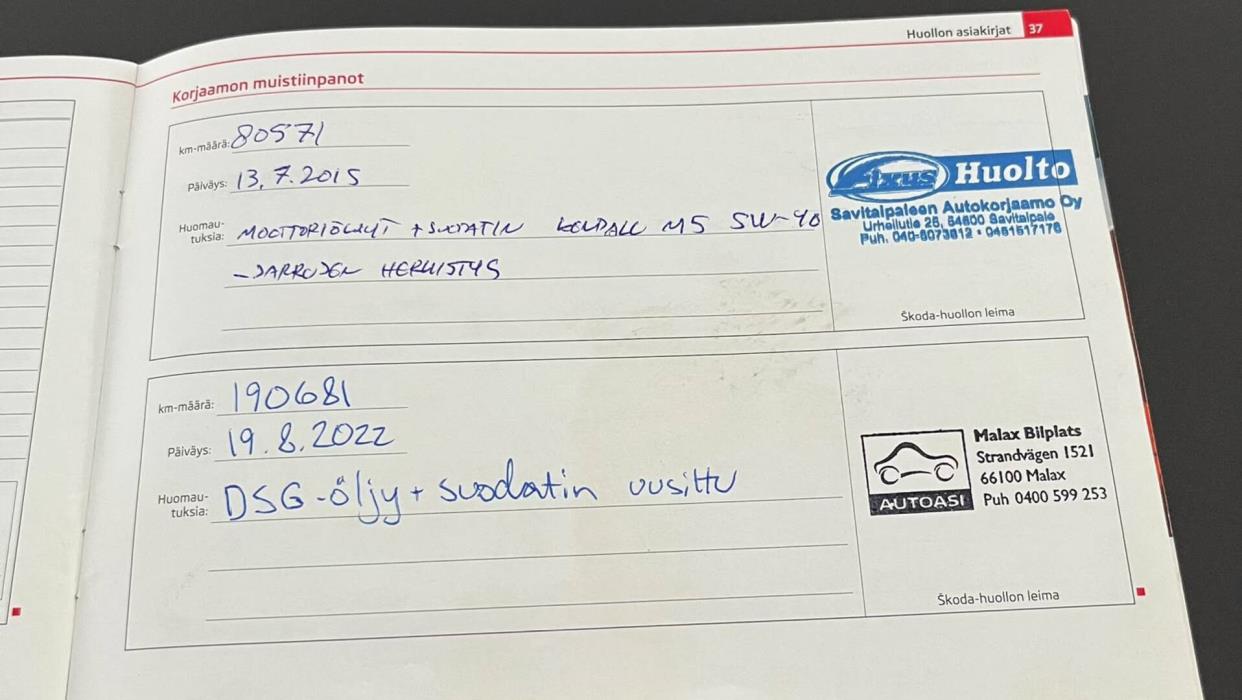 Huollon asiakirjat 37
Korjaamon muistiinpanot
km-määrä: 80571
Päiväys: 13.7.2015
Huomau-
tuksia: MOOTTORIÖLJYT + SUODATIN KENDALL M5 5W-40
- JARRUJEN HERKISTYS
Fixus Huolto
Savitaipaleen Autokorjaamo Oy
Urheilutie 25, 54800 Savitaipale
Puh. 040-8073812 • 0451517176
Škoda-huollon leima
km-määrä: 190681
Päiväys: 19.8.2022
Huomau-
tuksia: DSG-öljy + suodatin uusittu
AUTOASI
Malax Bilplats
Strandvägen 1521
66100 Malax
Puh 0400 599 253
Škoda-huollon leima